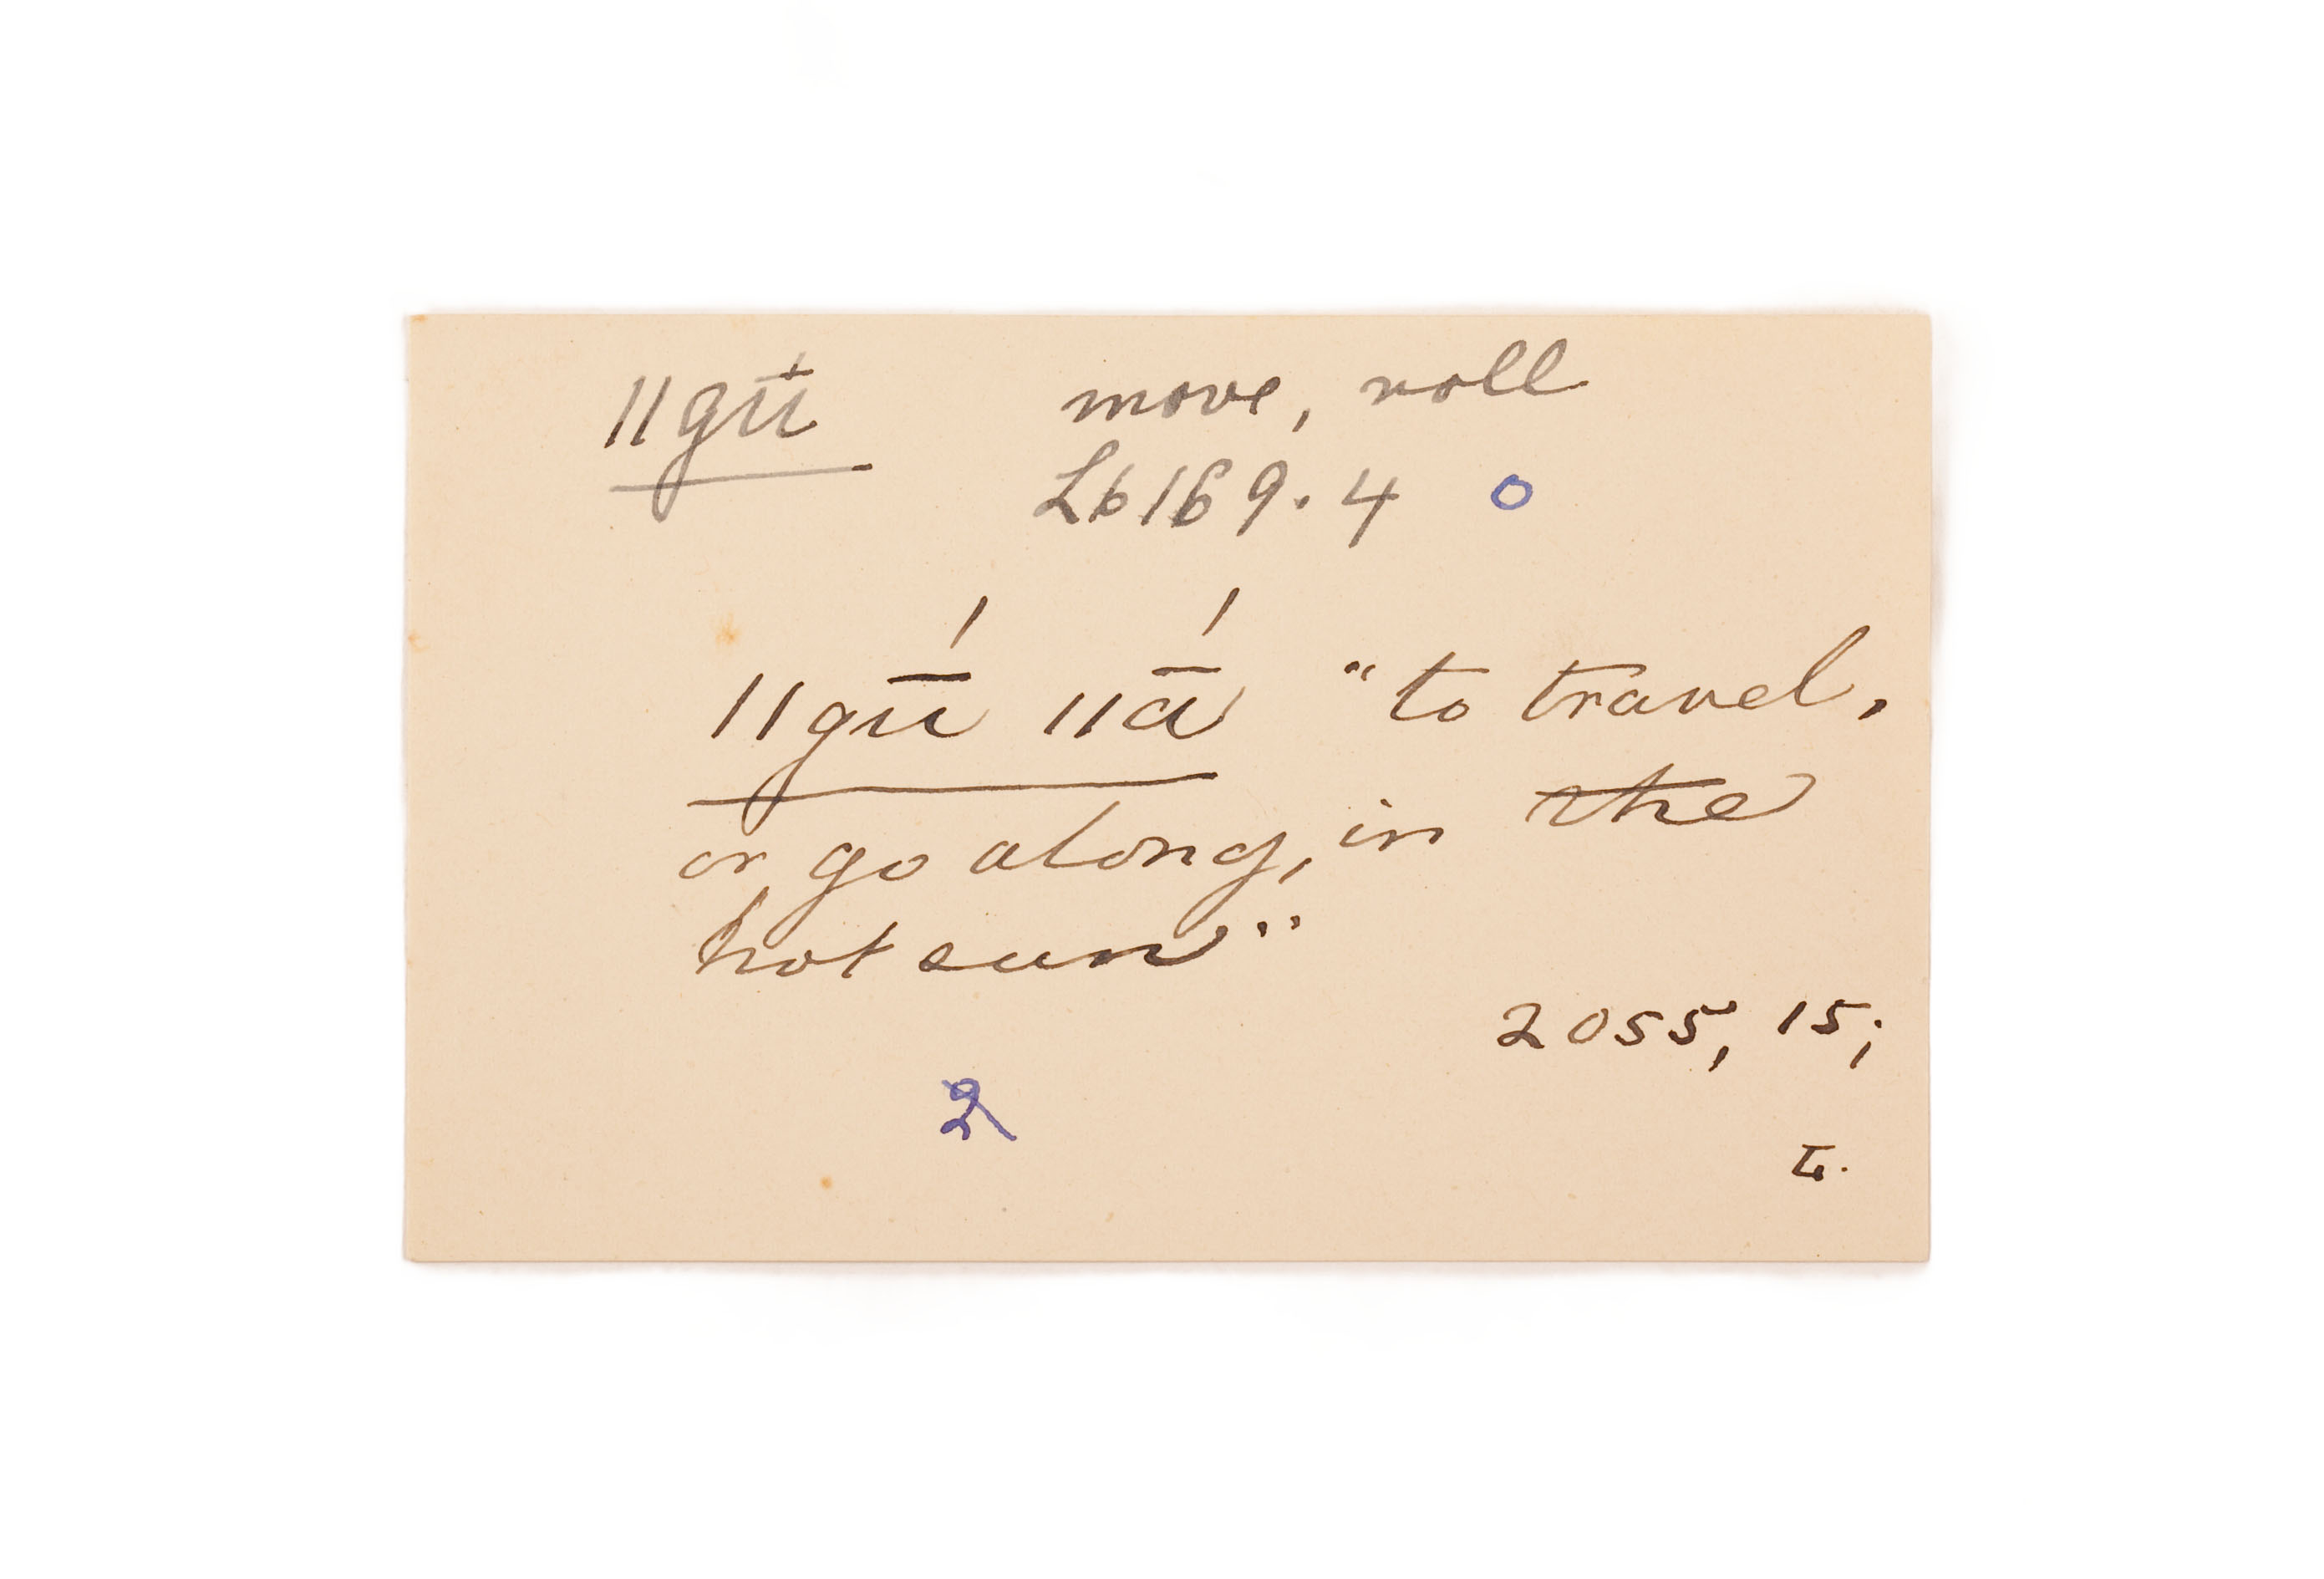 ǁgū́ move, roll
L6169.4 o
ǁgū́ ǁā́ "to travel,
or go along, in the
hot sun"
2055, 15;
2